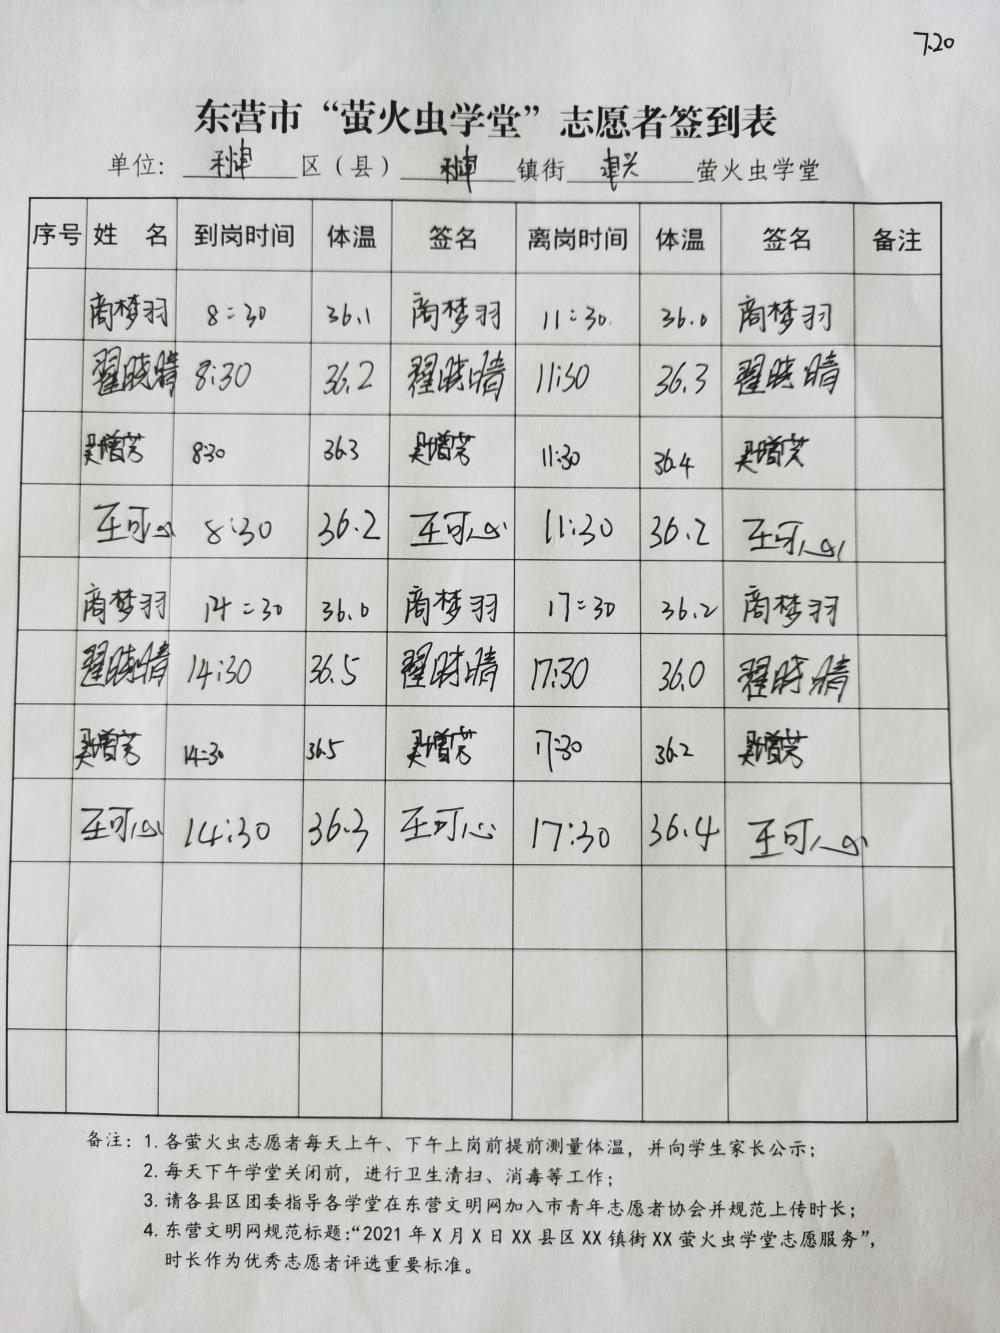 7.20
东营市“萤火虫学堂”志愿者签到表
单位：利津区（县）利津镇街津兴萤火虫学堂
序号 姓 名 到岗时间 体温 签名 离岗时间 体温 签名 备注
商梦羽 8:30 36.1 商梦羽 11:30. 36.0 商梦羽
翟晓晴 8:30 36.2 翟晓晴 11:30 36.3 翟晓晴
吴增芳 8:30 36.3 吴增芳 11:30 36.4 吴增芳
王可心 8:30 36.2 王可心 11:30 36.2 王可心
商梦羽 14:30 36.0 商梦羽 17:30 36.2 商梦羽
翟晓晴 14:30 36.5 翟晓晴 17:30 36.0 翟晓晴
吴增芳 14:30 36.5 吴增芳 17:30 36.2 吴增芳
王可心 14:30 36.3 王可心 17:30 36.4 王可心
备注：1. 各萤火虫志愿者每天上午、下午上岗前提前测量体温，并向学生家长公示；
2. 每天下午学堂关闭前，进行卫生清扫、消毒等工作；
3. 请各县区团委指导各学堂在东营文明网加入市青年志愿者协会并规范上传时长；
4. 东营文明网规范标题：“2021 年 X 月 X 日 XX 县区 XX 镇街 XX 萤火虫学堂志愿服务”，
时长作为优秀志愿者评选重要标准。